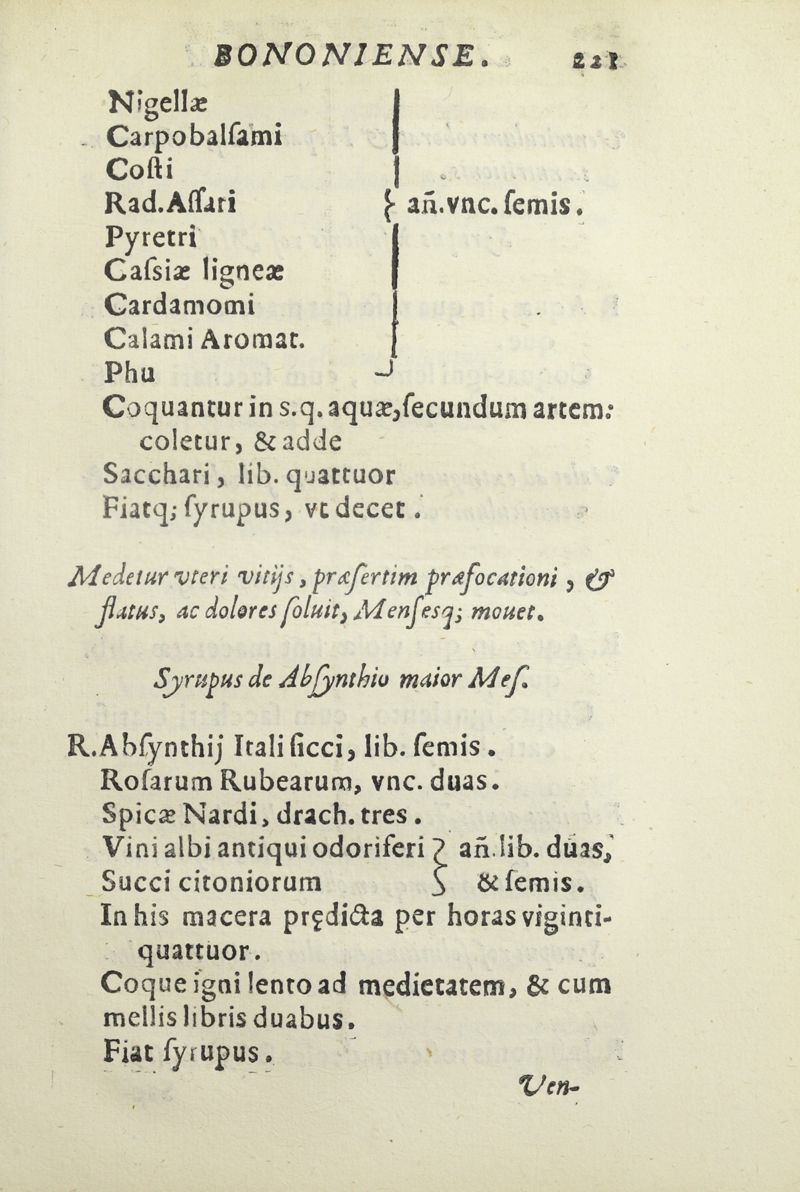 BONONIENSE. 221
Nigellæ
Carpobalſami
Coſti
Rad.Aſſari } añ.vnc. ſemis.
Pyretri
Caſsiæ ligneæ
Cardamomi
Calami Aromat.
Phu
Coquantur in s.q. aquæ, ſecundum artem:
coletur, & adde
Sacchari, lib. quattuor
Fiatq; ſyrupus, vt decet.
Medetur vteri vitijs, præſertim præfocationi, &
flatus, ac dolores ſoluit, Menſesq; mouet.
Syrupus de Abſynthio maior Meſ.
R.Abſynthij Itali ſicci, lib. ſemis.
Roſarum Rubearum, vnc. duas.
Spicæ Nardi, drach. tres.
Vini albi antiqui odoriferi } añ.lib. duas,
Succi citoniorum } & ſemis.
In his macera prędicta per horas viginti-
quattuor.
Coque igni lento ad medietatem, & cum
mellis libris duabus.
Fiat ſyrupus.
Ven-